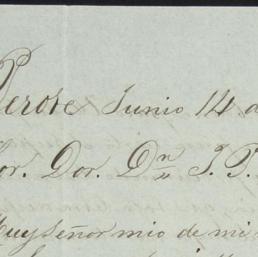 Perote Junio 14 d
or. Dor. Dn J. P.
Muy Señor mio de mi